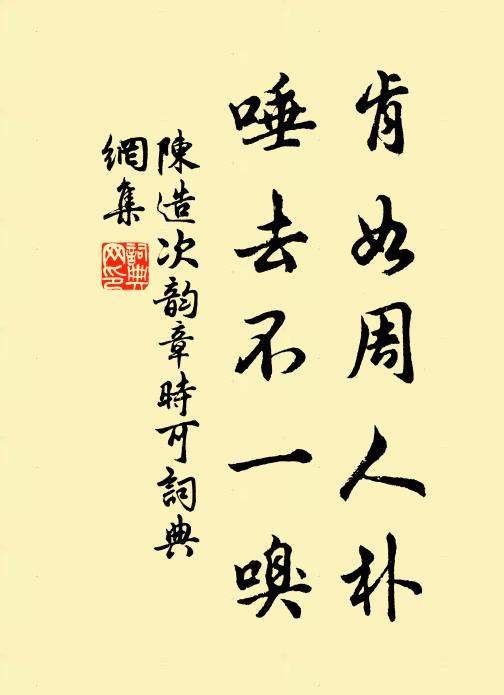 肯如周人朴
唾去不一嗅
陳造次韵章時可詞典
網集
詞典网印